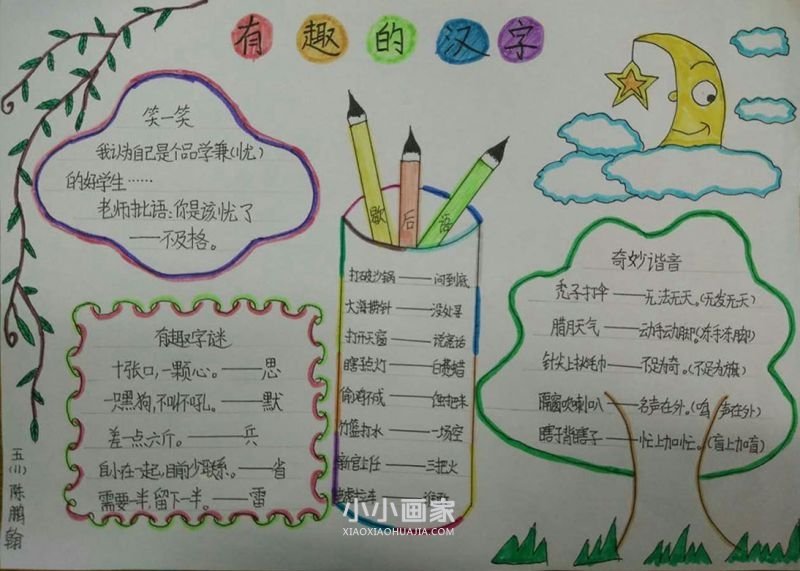 有趣的汉字
笑一笑
我认为自己是个品学兼(忧)
的好学生……
老师批语:你是该忧了
——不及格。
有趣字谜
十张口,一颗心。——思
一只黑狗,不叫不吼。——默
差一点六斤。——兵
自小在一起,目前少联系。——省
需要一半,留下一半。——雷
歇后语
打破沙锅——问到底
大海捞针——没处寻
打开天窗——说亮话
瞎子点灯——白费蜡
偷鸡不成——蚀把米
竹篮打水——一场空
新官上任——三把火
奇妙谐音
秃子打伞——无法无天。(无发无天)
腊月天气——动手动脚。(冻手冻脚)
针尖上挑毛巾——不足为奇。(不足为旗)
隔窗吹喇叭——名声在外。(鸣声在外)
瞎子背瞎子——忙上加忙。(盲上加盲)
五(1)陈鹏翰
小小画家
XIAOXIAOHUAJIA.COM